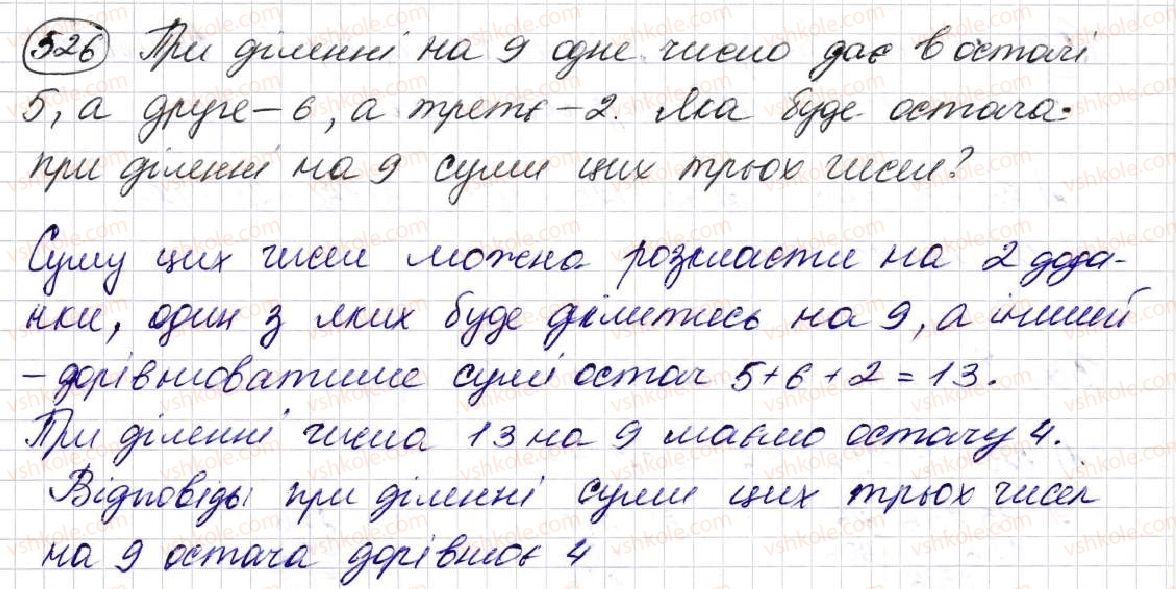 526 При діленні на 9 одне число дає в остачі
5, а друге – 6, а третє – 2. Яка буде остача
при діленні на 9 суми цих трьох чисел?
Суму цих чисел можна розкласти на 2 дода-
нки, один з яких буде ділитись на 9, а інший
– дорівнюватиме сумі остач 5 + 6 + 2 = 13.
При діленні числа 13 на 9 маємо остачу 4.
Відповідь: при діленні суми цих трьох чисел
на 9 остача дорівнює 4